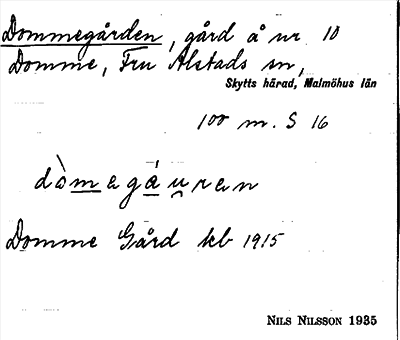 Dommegården, gård å nr 10
Domme, Fru Alstads sn,
Skytts härad, Malmöhus län
100 m. S 16
dòmegáu̯ren
Domme Gård kb 1915
NILS NILSSON 1935